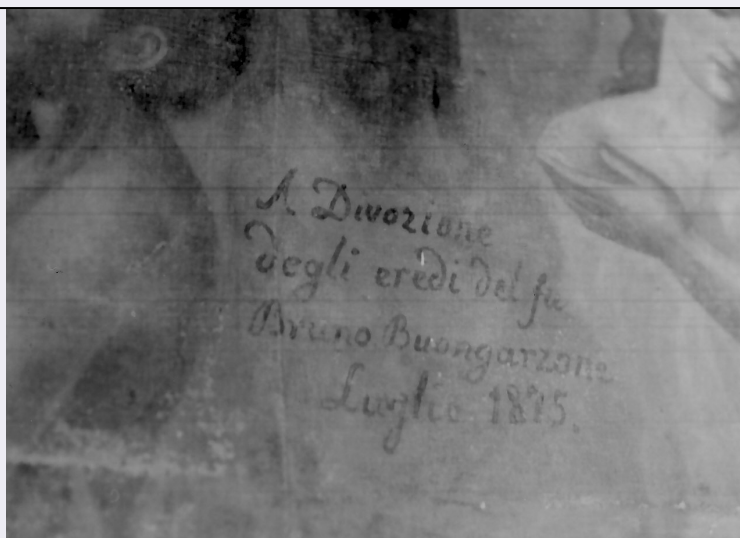 A Divozione
degli eredi del fu
Bruno Buongarzone
Luglio 1875.